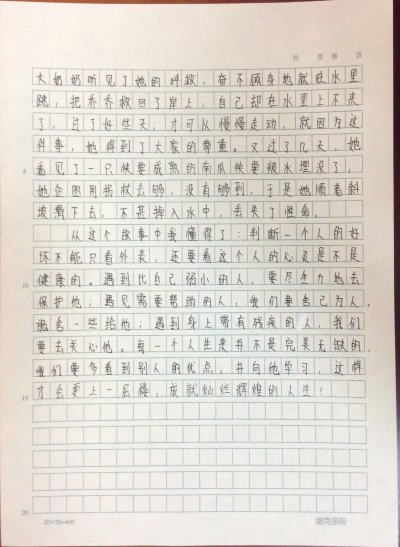 共 页 第 页
大奶奶听见了她的呼救，奋不顾身地就往水里
跳，把乔乔救回了岸上，自己却在水里上不来
了，过了好些天，才可以慢慢走动，就因为这
件事，她得到了大家的尊重。又过了几天，她
5
看见了一只快要成熟的南瓜快要被水埋没了，
她企图用拐杖去够，没有够到，于是她顺着斜
坡滑下去，不甚掉入水中，丢失了性命。
从这个故事中我懂得了：判断一个人的好
坏不能只看外表，还要看这个人的心灵是不是
10
健康的。遇到比自己弱小的人，要尽全力地去
保护他；遇见需要帮助的人，我们要舍己为人，
施舍一些给他；遇到身上带有残疾的人，我们
要去关心他。每一个人生来并不是完美无缺的，
我们要多看到别人的优点，并向他学习，这样
15
才会更上一层楼，成就灿烂辉煌的人生！
20
20×20=400